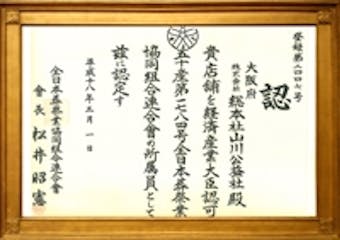 登録第二四四七号
認
大阪府
株式会社 総本社山川公益社殿
貴店舗を経済産業大臣認可
五十産第一七八四号全日本葬祭業
協同組合連合會の所属員として
茲に認定す
平成十八年三月一日
全日本葬祭業協同組合連合會
會長 松井昭憲